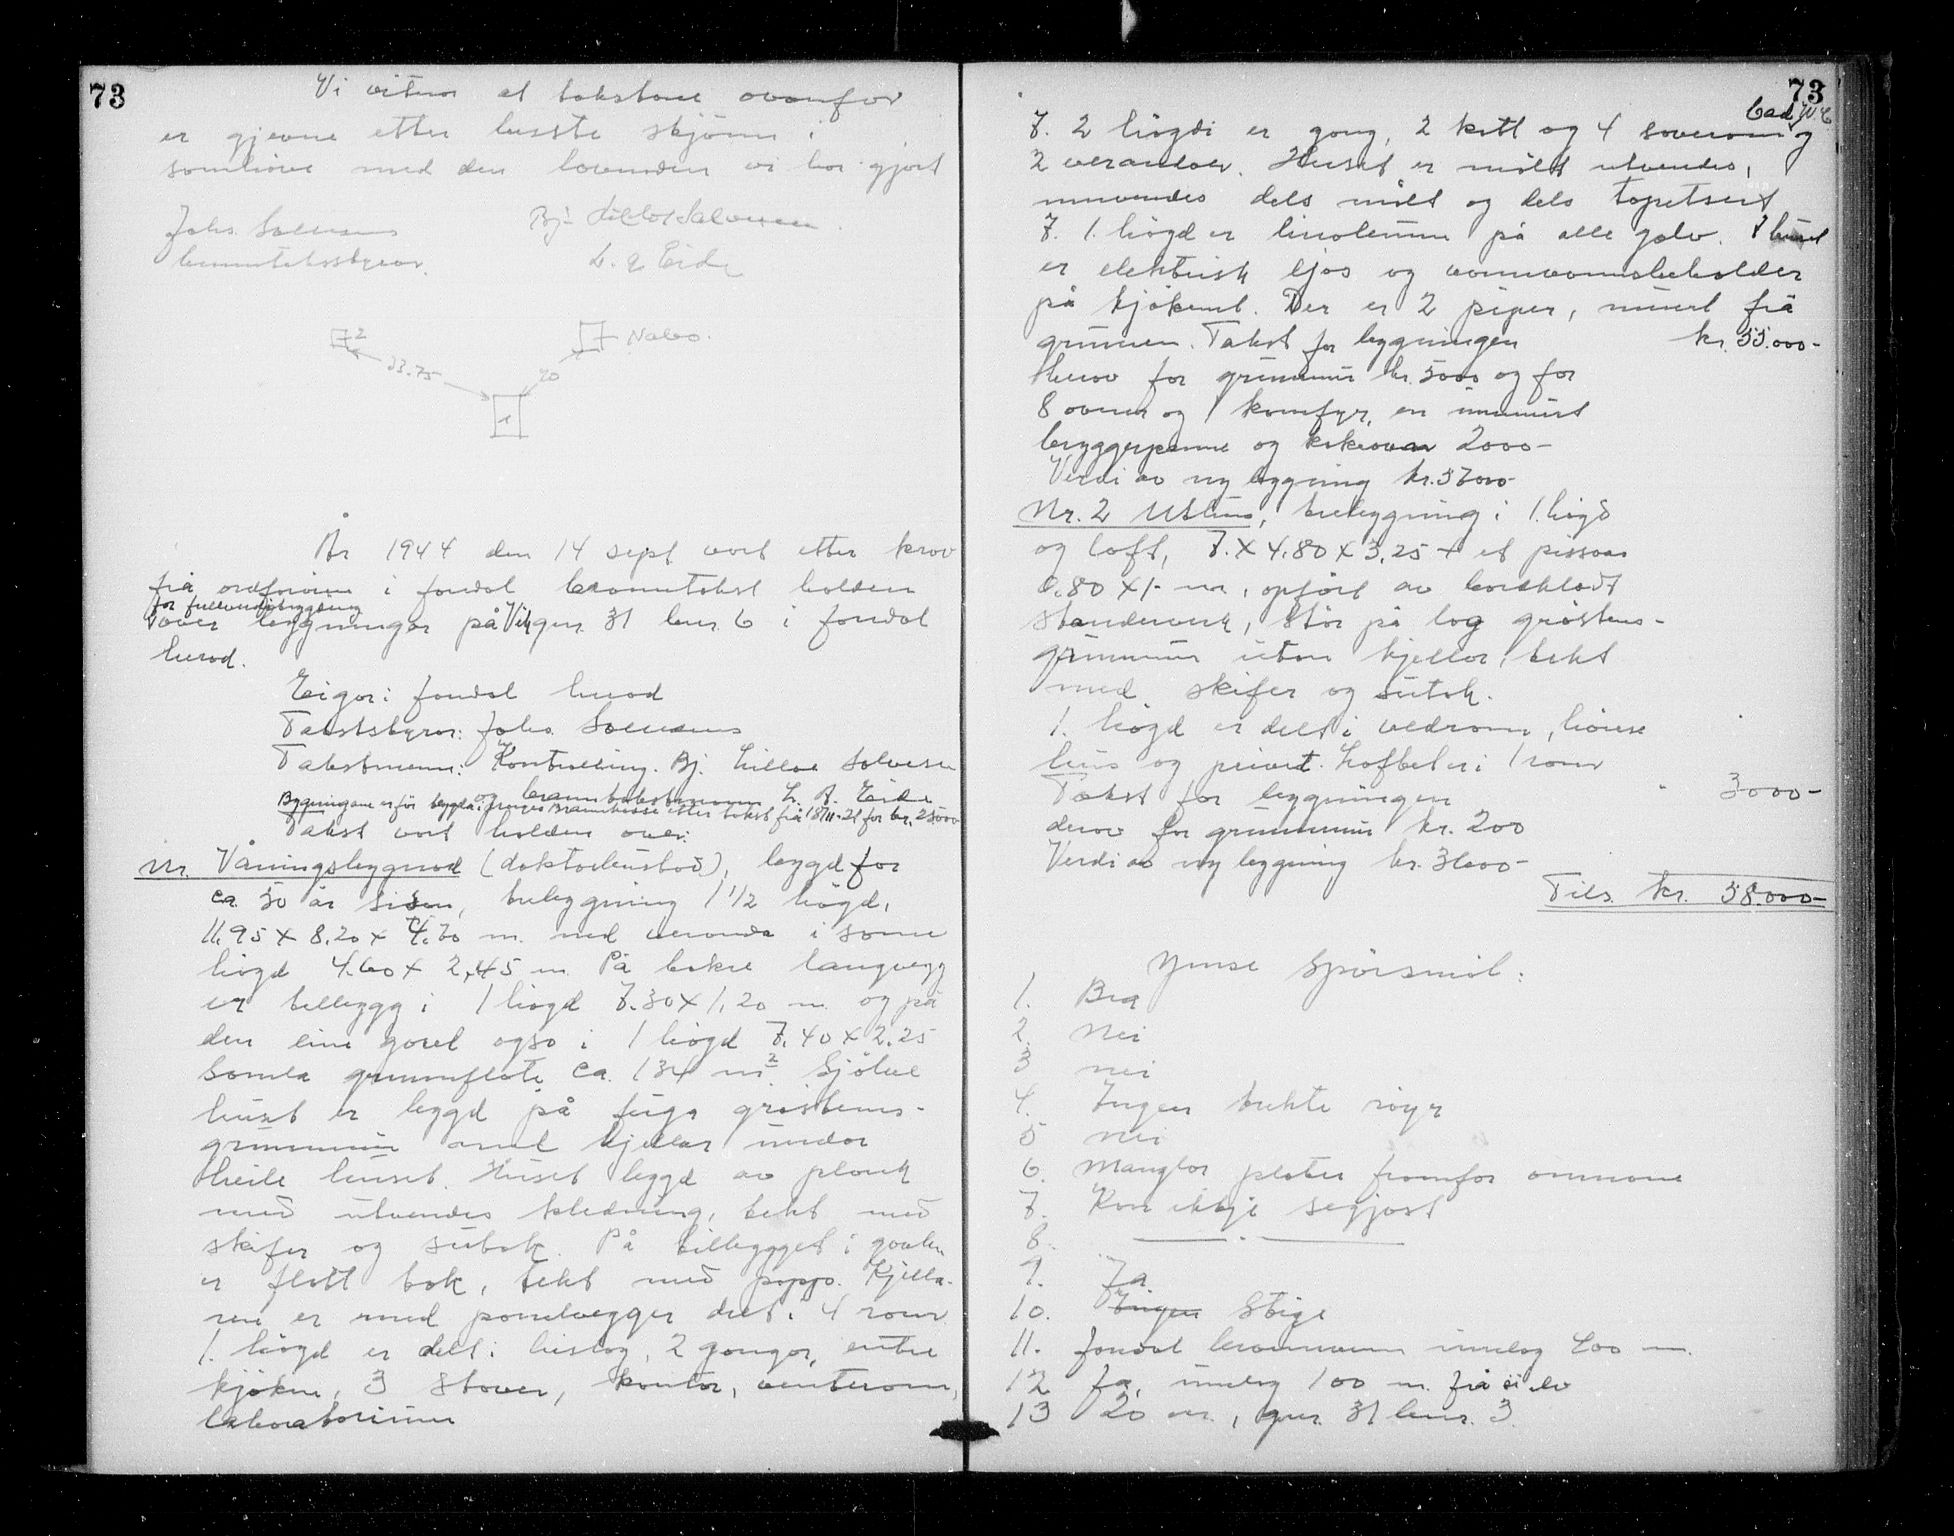 73
Vi vitner at takstane ovanfor
er gjevne etter beste skjønn i
samhøve med den lovnaden vi har gjort
Johs. Solemsnes
branntakstsyrar.
Bj. Lillos Salvesen
L. A. Eide
2
33.75
20
Nabo.
1
År 1944 den 14 sept vart etter krav
frå ordføraren i Jondal branntakst halden
for fullverdistrygding
over bygningar på Vik gnr. 31 bnr. 6 i Jondal
herad.
Eigar: Jondal herad
Takststyrar: Johs. Solemsnes
Takstmenn: Kontrolling. Bj. Lillos Salvesen
og branntakstmann L. A. Eide
Bygningane er før trygda i Noregs Brannkasse etter takst frå 18/11-21 for kr. 25000
Takst vart halden over:
Nr. Våningsbygnad (doktorbustad), bygd for
ca. 50 år sidan, trebygning 1 1/2 høgd,
11.95 x 8.20 x 4.20 m. med veranda i same
høgd 4.60 x 2,45 m. På bakre langvegg
er tilbygg i 1 høgd 7.30 x 1,20 m. og på
den eine gavel også i 1 høgd 7.40 x 2.25
Samla grunnflate ca. 134 m². Sjølve
huset er bygd på fuga gråsteins-
grunnmur med kjellar under
heile huset. Huset bygd av plank
med utvendes kledning, tekt med
skifer og sutak. På tilbygget i gavlen
er flatt tak, tekt med papp. Kjella-
ren er med panelvegger delt i 4 rom
1. høgd er delt i bislag, 2 gangar, entre
kjøken, 3 stover, kontor, venterom,
laboratorium
73
bad, W.C
I. 2 høgdi er gang, 2 kott og 4 soverom og
2 verandaer. Huset er målt utvendes,
innvendes dels målt og dels tapetsert
I. 1. høgd er linoleum på alle golv. I huset
er elektrisk ljos og varmvannsbeholder
på kjøkenet. Der er 2 piper, murt frå
grunnen. Takst for bygningen kr. 55.000-
Herav for grunnmur kr. 5000 og for
8 ovner og 1 komfyr, en innmurt
bryggerpanne og kakeovn 2000-
Verdi av ny bygning kr. 57000-
Nr. 2 Uthus, trebygning i 1. høgd
og loft, 7. x 4.80 x 3.25 + et pissoar
0.80 x 1- m, opført av bordkledt
stenderverk, står på lag gråsteins-
grunnmur utan kjellar, tekt
med skifer og sutak.
1. høgd er delt i vedrom, hønse
hus og privet. Loftet er i 1 rom
Takst for bygningen 3000-
derav for grunnmur kr. 200
Verdi av ny bygning kr. 3600-
Tils. kr. 58.000-
Ymse spørsmål:
1. Bra
2. Nei
3 nei
4. Ingen trekte røyr
5 nei
6. Manglar plater framfor omnane
7. Kan ikkje segjast
8.
9. Ja
10. Ingen Stige
11. Jondal brannvern innlag 400 m.
12 Ja, innlag 100 m. frå ei elv
13 20 m., gnr. 31 bnr. 3.